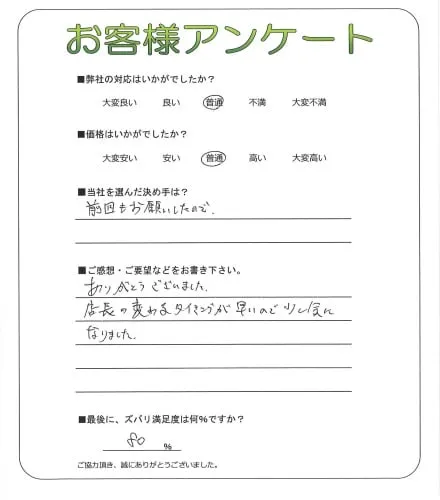 お客様アンケート
■弊社の対応はいかがでしたか?
大変良い 良い 普通 不満 大変不満
■価格はいかがでしたか?
大変安い 安い 普通 高い 大変高い
■当社を選んだ決め手は?
前回もお願いしたので、
■ご感想・ご要望などをお書き下さい。
ありがとうございました。
店長の変わるタイミングが早いので少し気に
なりました。
■最後に、ズバリ満足度は何%ですか?
80 %
ご協力頂き、誠にありがとうございました。